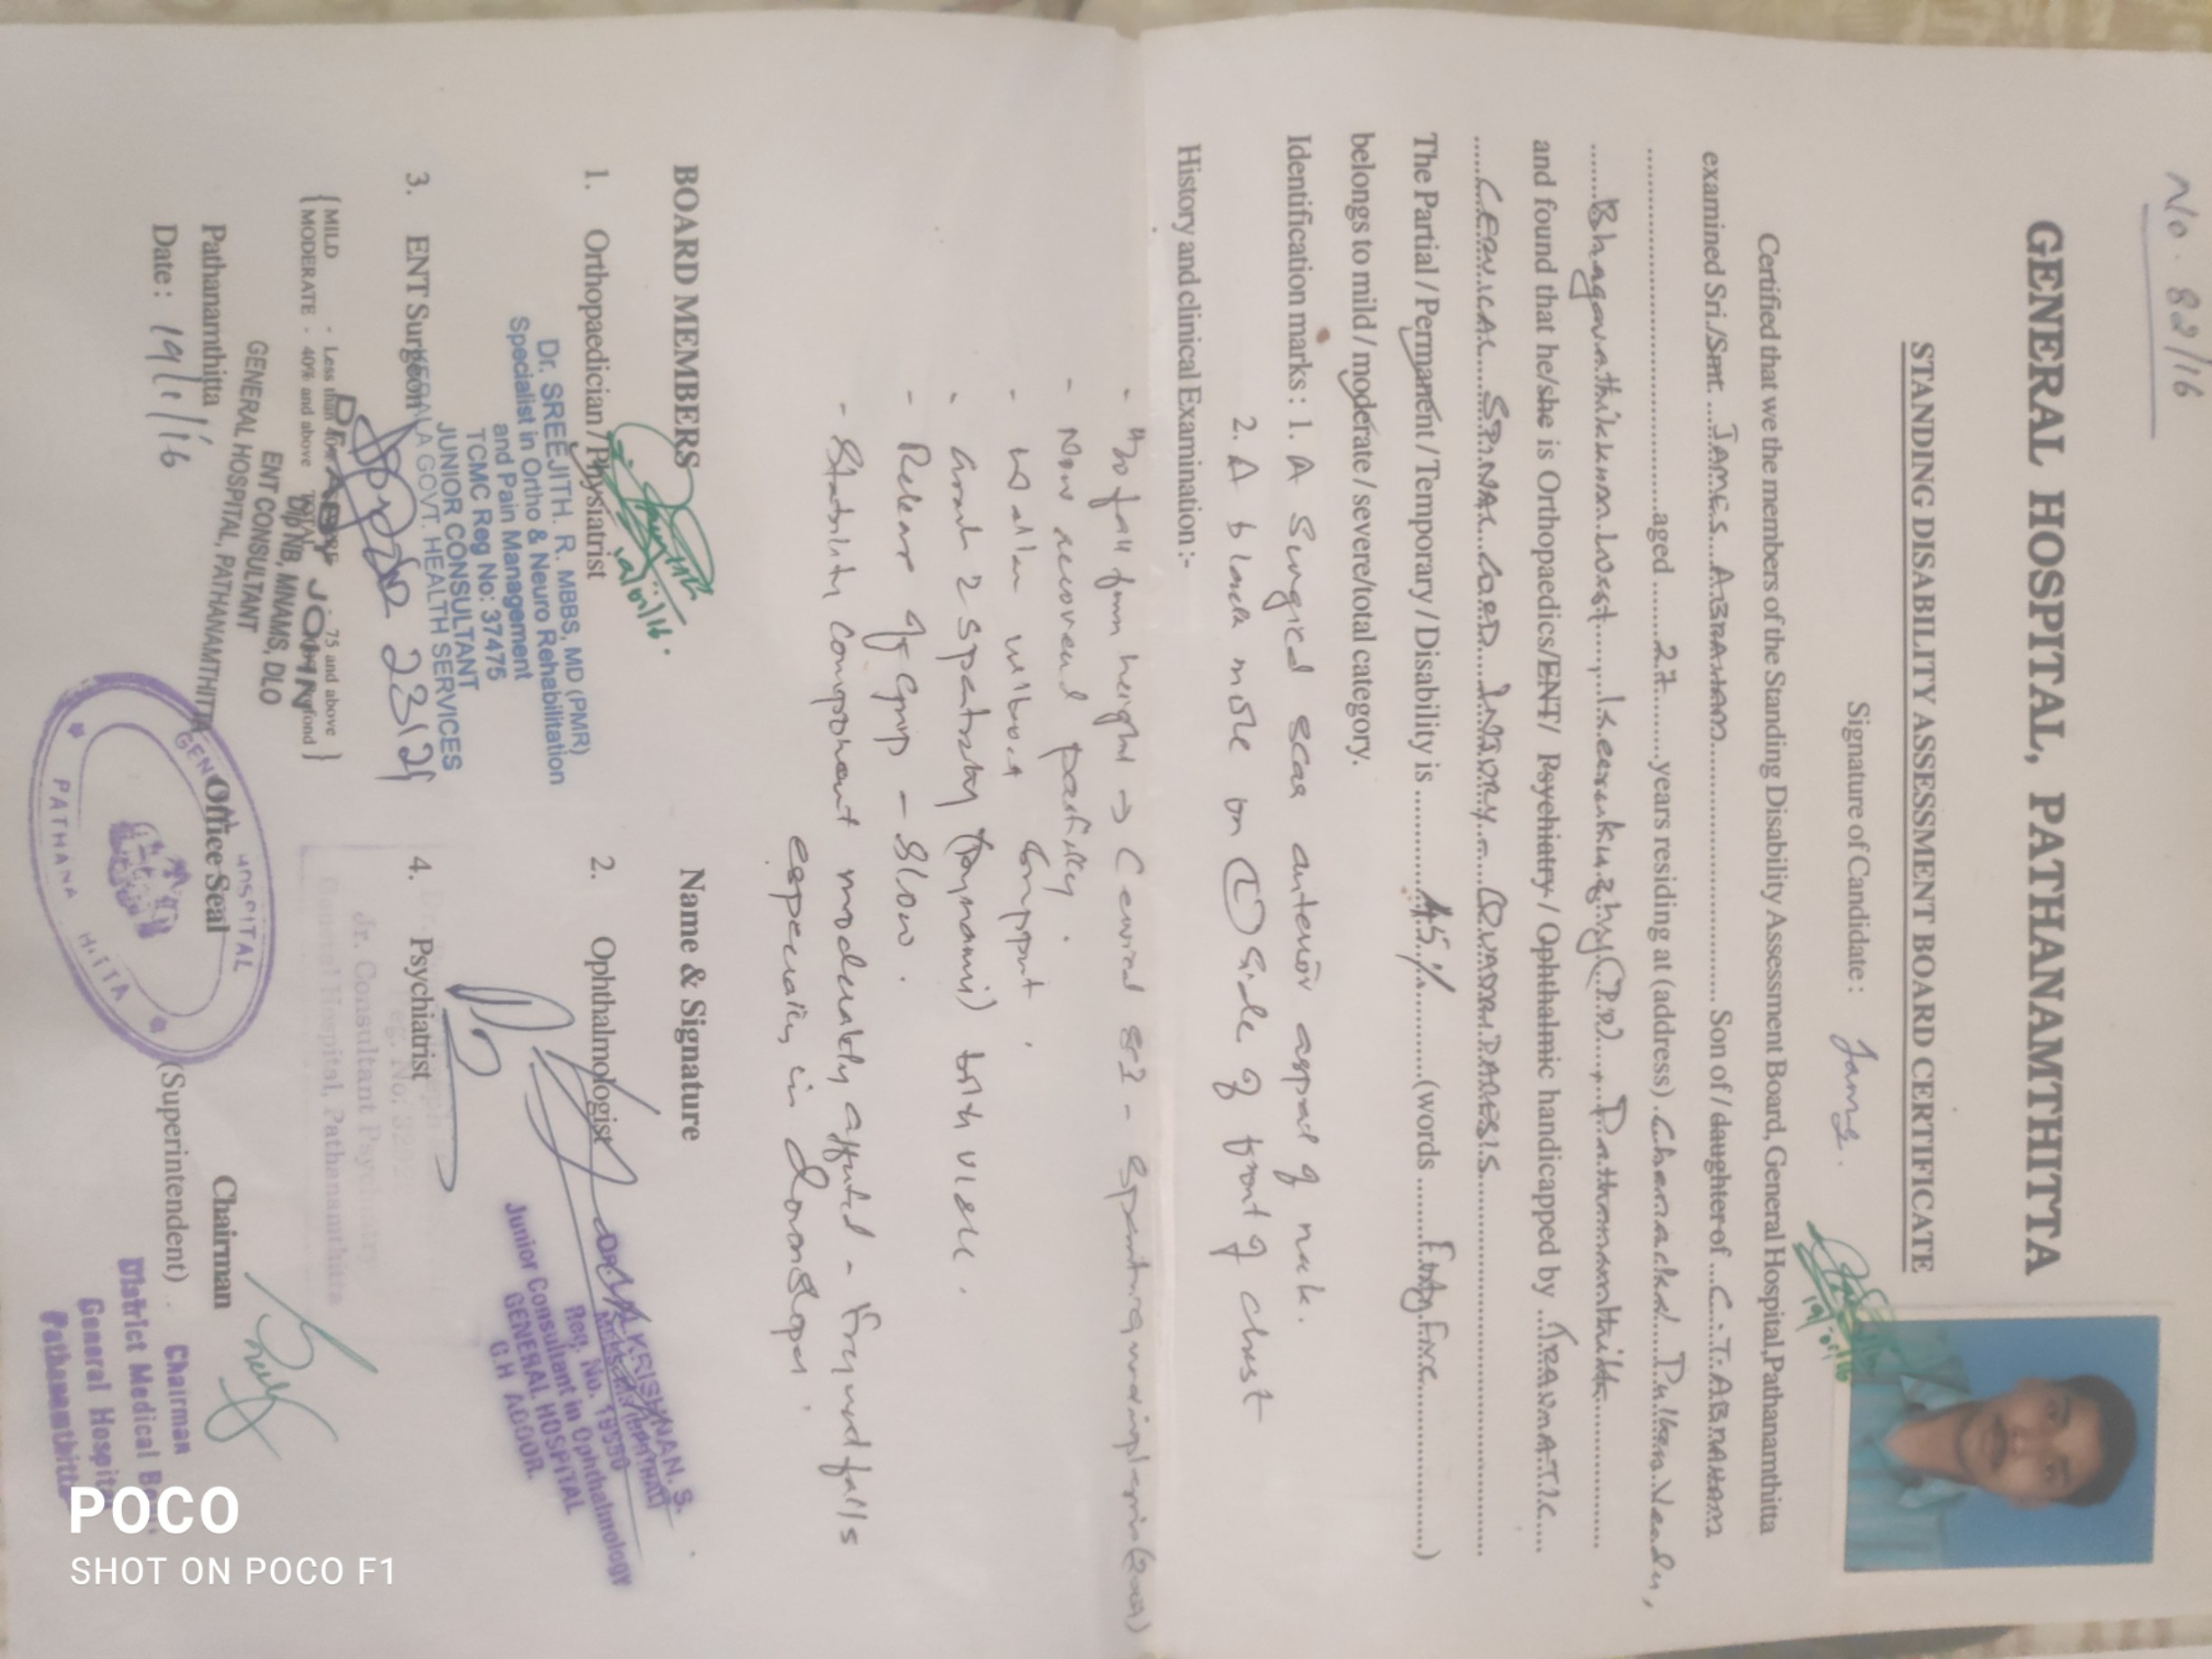 No. 82/16
GENERAL HOSPITAL, PATHANAMTHITTA
STANDING DISABILITY ASSESSMENT BOARD CERTIFICATE
Signature of Candidate : James.
19/01/16
Certified that we the members of the Standing Disability Assessment Board, General Hospital,Pathanamthitta
examined Sri./Smt. JAMES ABRAHAM Son of / daughter of C.T. ABRAHAM
aged 27 years residing at (address) Puthen Veedu,
Bhagavathikkum
and found that he/she is Orthopaedics/ENT/ Psychiatry / Ophthalmic handicapped by TRAUMATIC
CERVICAL SPINAL CORD INJURY - QUADRIPARESIS
The Partial / Permanent / Temporary / Disability is 45% (words Forty Five)
belongs to mild / moderate / severe/total category.
Identification marks : 1. A Surgical scar anterior aspect of neck.
2. A black mole on (L) side of front of chest
History and clinical Examination :-
- H/o fall from height →
- Now recovered partially.
- Walks without support.
- Grade 2 spasticity (Dynamic) both
- Release of Grip - Slow.
- Stability component moderately affected - Frequent falls
especially in down slopes.
BOARD MEMBERS
Name & Signature
19/01/16.
1. Orthopaedician / Physiatrist
2. Ophthalmologist
Dr. SREEJITH. R. MBBS, MD (PMR)
Specialist in Ortho & Neuro Rehabilitation
and Pain Management
TCMC Reg No: 37475
JUNIOR CONSULTANT
KERALA GOVT. HEALTH SERVICES
KRISHNAN. S.
Reg. No.
Junior Consultant in Ophthalmology
GENERAL HOSPITAL
G.H ADOOR.
3. ENT Surgeon
4. Psychiatrist
23129
Jr. Consultant Psychiatry
General Hospital, Pathanamthitta
MILD - Less than 40%
75 and above
MODERATE - 40% and above
JOHN
DipNB, MNAMS, DLO
ENT CONSULTANT
GENERAL HOSPITAL, PATHANAMTHITTA
Pathanamthitta
Date : 19/1/16
Office Seal
HOSPITAL
PATHANA
HITTA
Chairman
(Superintendent)
Chairman
District Medical
General
Pathanamthitta
POCO
SHOT ON POCO F1